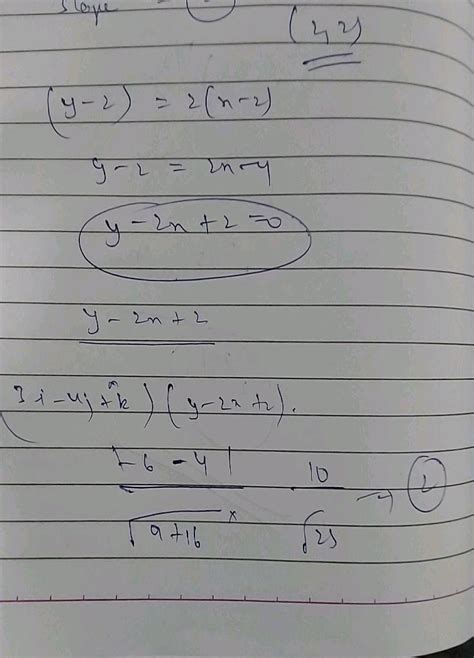 Slope =
(2, 2)
(y-2) = 2(x-2)
y-2 = 2x-4
y-2x+2=0
y-2x+2
3i-4j+k̂) (y-2x+2).
|-6-4| 10 → 2
√9+16 × √25